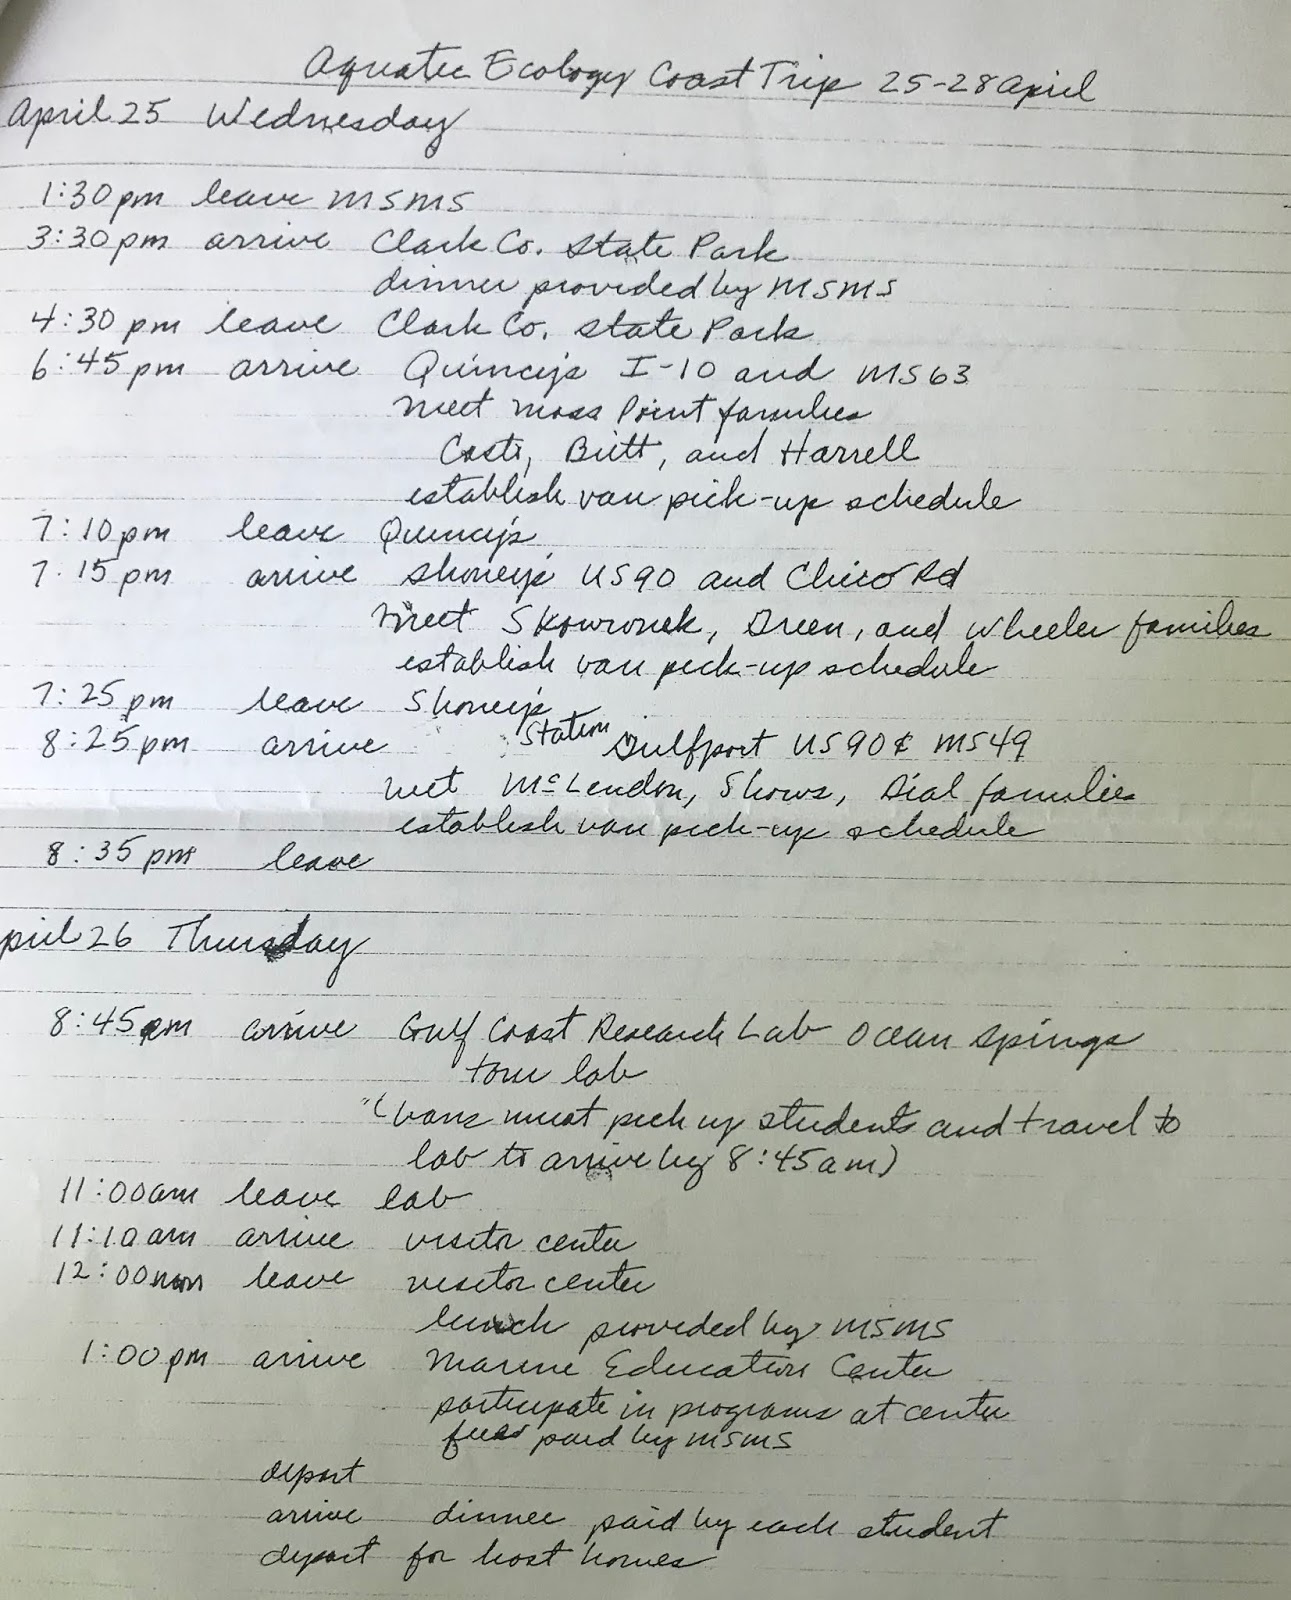 Aquatic Ecology Coast Trip 25-28 April
April 25 Wednesday
1:30 pm leave MSMS
3:30 pm arrive Clark Co. State Park
dinner provided by MSMS
4:30 pm leave Clark Co. State Park
6:45 pm arrive Quincy's I-10 and MS 63
meet Moss Point families
Butt, and Harrell
establish van pick-up schedule
7:10 pm leave Quincy's
7:15 pm arrive Shoney's US 90 and Chico Rd
meet Skowronek, Green, and Wheeler families
establish van pick-up schedule
7:25 pm leave Shoney's
8:25 pm arrive Station Gulfport US 90 & MS 49
meet McLendon, Shows, Dial families
establish van pick-up schedule
8:35 pm leave
pril 26 Thursday
8:45 am arrive Gulf Coast Research Lab Ocean Springs
tour lab
(vans must pick up students and travel to
lab to arrive by 8:45 am)
11:00 am leave lab
11:10 am arrive visitor center
12:00 noon leave visitor center
lunch provided by MSMS
1:00 pm arrive Marine Education Center
participate in programs at center
fees paid by MSMS
depart
arrive dinner paid by each student
depart for host homes